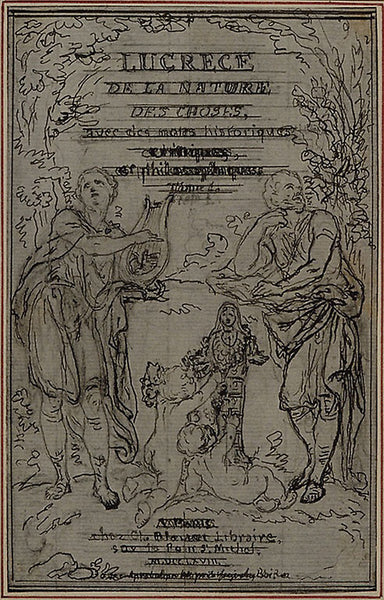 LUCRECE
DE LA NATURE
DES CHOSES,
avec des notes historiques
critiques,
et philosophiques,
Tome I.
A PARIS
chez Cl. Blauet Libraire,
pont S. Michel,
MDCCLXVIII